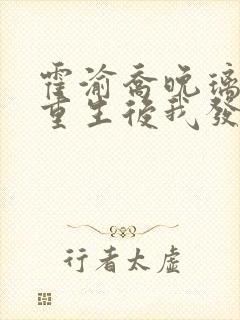 霍渝喬晚璃
重生後我發
行者太虛